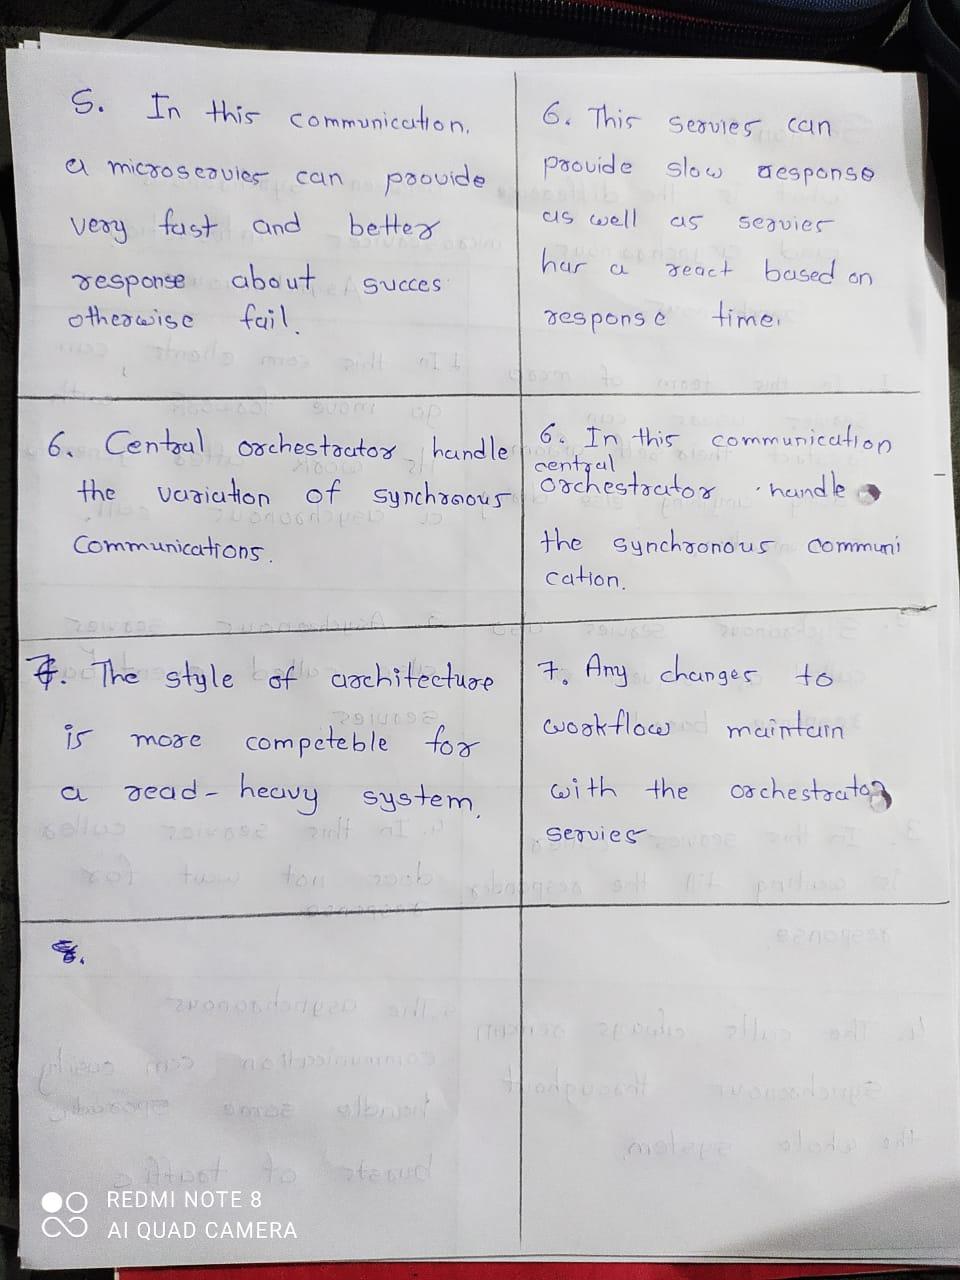 5. In this communication.
a microservies can provide
very fast and better
response about succes
otherwise fail.
6. This servies can
provide slow response
as well as servies
har a react based on
response time.
6. Central orchestrator handle
the variation of synchronous
communications.
6. In this communication
central
orchestrator handle
the synchronous communi
cation.
7. The style of architecture
is more competeble for
a read-heavy system.
7. Any changes to
workflow maintain
with the orchestrator
servies
8.
REDMI NOTE 8
AI QUAD CAMERA